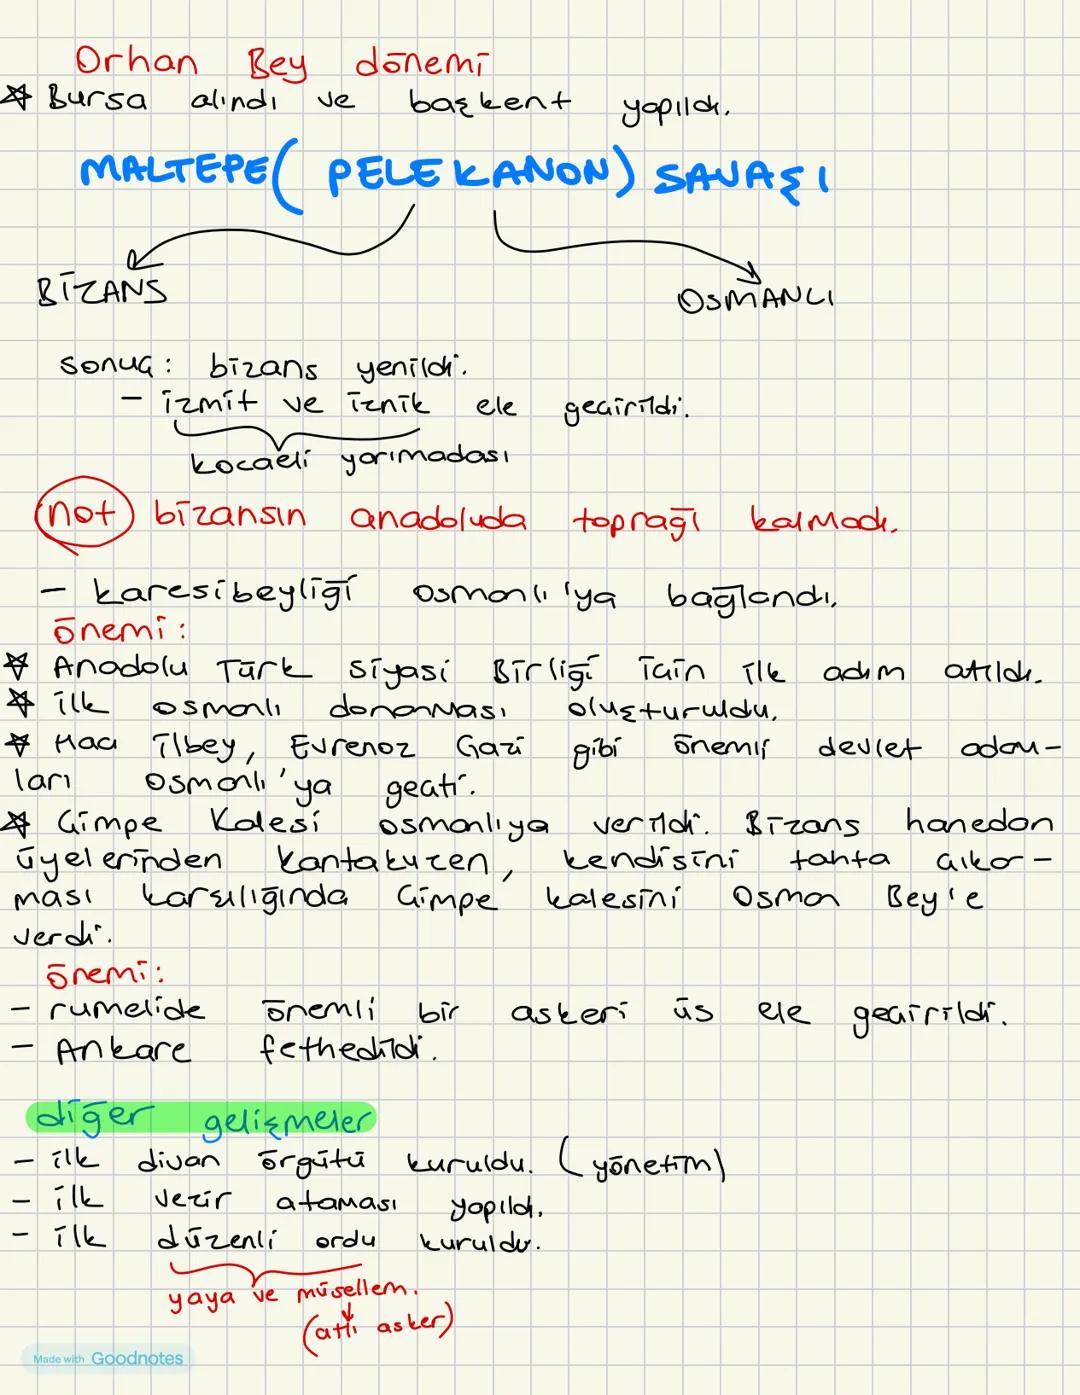 Orhan Bey dönemi
☆ Bursa alındı ve başkent yapıldı.
MALTEPE( PELEKANON) SAVAŞI
BİZANS
OSMANLI
sonuç: bizans yenildi.
- izmit ve iznik ele geçirildi.
kocaeli yarımadası
not bizansın anadoluda toprağı kalmadı.
- karesibeyliği osmanlı'ya bağlandı.
önemi:
☆ Anadolu Türk Siyasi Birliği için ilk adım atıldı.
☆ ilk osmanlı donanması oluşturuldu.
☆ Hacı ilbey, Evrenoz Gazi gibi önemli devlet adam-
ları osmanlı'ya geçti.
☆ Çimpe Kalesi osmanlıya verildi. Bizans hanedan
üyelerinden Kantakuzen, kendisini tahta çıkar-
ması karşılığında Çimpe kalesini Osman Bey'e
verdi.
önemi:
- rumelide önemli bir askeri üs ele geçirildi.
- Ankare fethedildi.
diğer gelişmeler
- ilk divan örgütü kuruldu. (yönetim)
- ilk vezir ataması yapıldı.
- ilk düzenli ordu kuruldu.
yaya ve müsellem.
(atlı asker)
Made with Goodnotes